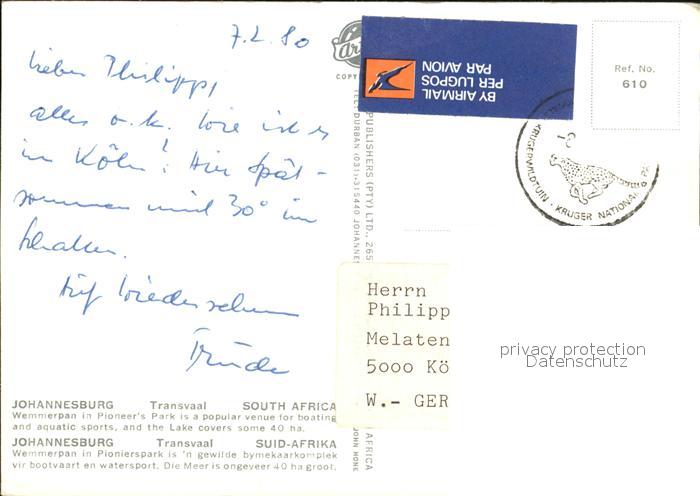 7.2.80
Lieber Philipp,
alles o.k. Wie ist es
in Köln! Hier Spät-
sommer mit 30° im
Schatten.
Auf Wiedersehen
Trude
JOHANNESBURG Transvaal SOUTH AFRICA
Wemmerpan in Pioneer's Park is a popular venue for boating
and aquatic sports, and the Lake covers some 40 ha.
JOHANNESBURG Transvaal SUID-AFRIKA
Wemmerpan in Pionierspark is 'n gewilde bymekaarkomplek
vir bootvaart en watersport. Die Meer is ongeveer 40 ha groot.
COPY
PUBLISHERS (PTY) LTD., 265
TEL: DURBAN (031)-315440 JOHANNES
AFRICA
JOHN HONE
BY AIRMAIL
PER LUGPOS
PAR AVION
Ref. No.
610
KRUGERWILDTUIN - KRUGER NATIONAL PA
Herrn
Philipp
Melaten
5000 Kö
W.- GER
privacy protection
Datenschutz